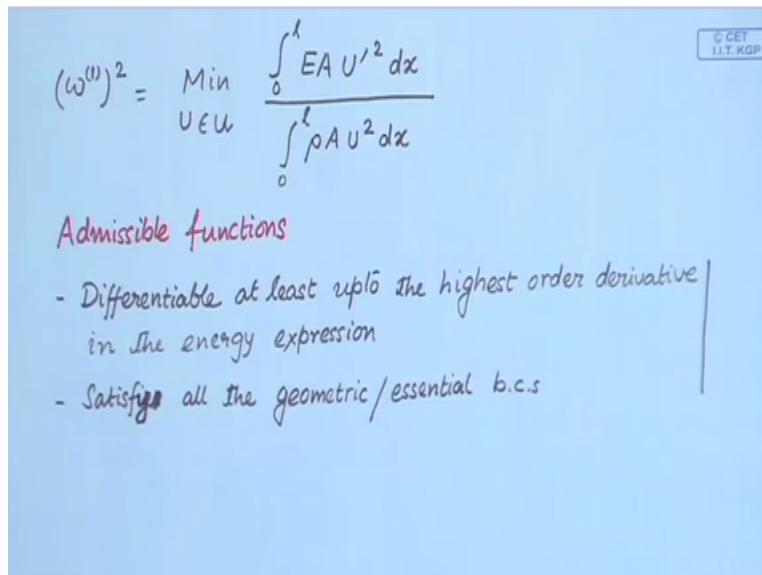 © CET
I.I.T. KGP
(ω⁽¹⁾)² = Min U∈𝒰 ∫₀ˡ EA U′² dx / ∫₀ˡ ρA U² dx
Admissible functions
- Differentiable at least upto the highest order derivative
in the energy expression
- Satisfy all the geometric/essential b.c.s